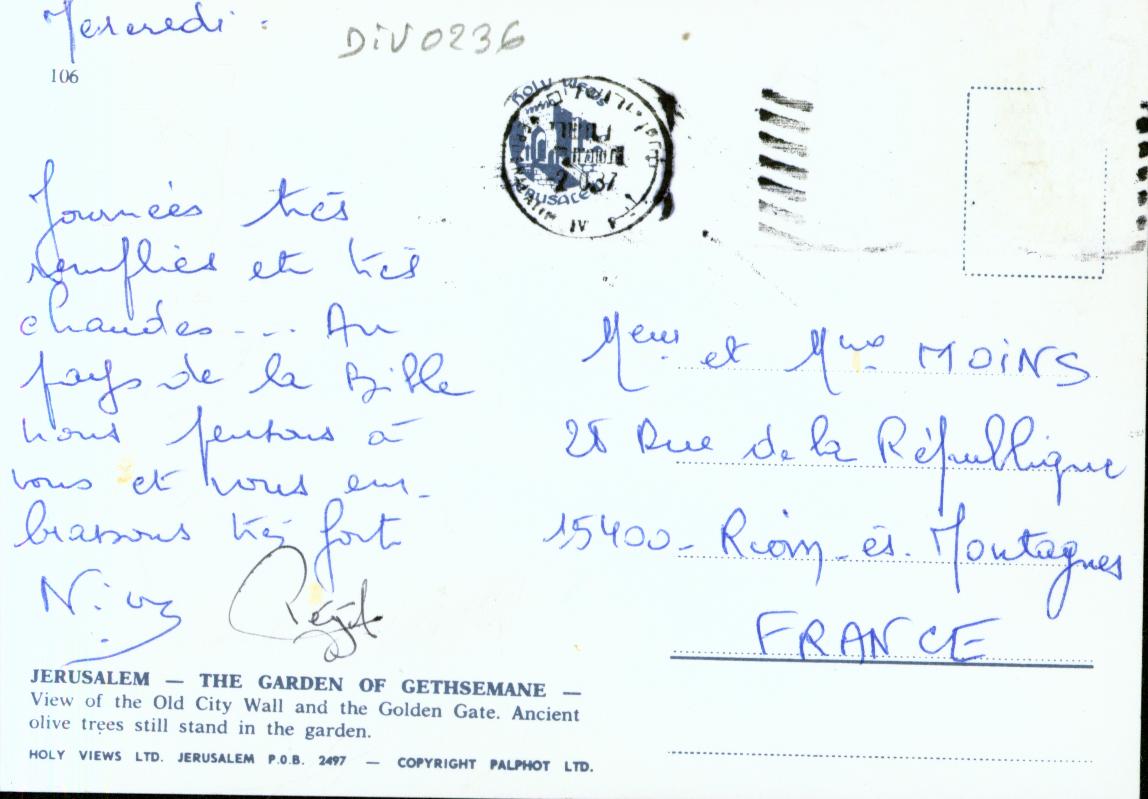 Mercredi :
DIV0236
106
HOLY VIEWS
JERUSALEM
Journées très
remplies et très
chaudes --- Au
pays de la Bible
nous pensons à
vous et vous em-
brassons très fort
Régit
Meur et Mme MOINS
28 Rue de la République
15400 - Riom - ès - Montagnes
FRANCE
JERUSALEM — THE GARDEN OF GETHSEMANE —
View of the Old City Wall and the Golden Gate. Ancient
olive trees still stand in the garden.
HOLY VIEWS LTD. JERUSALEM P.O.B. 2497 — COPYRIGHT PALPHOT LTD.